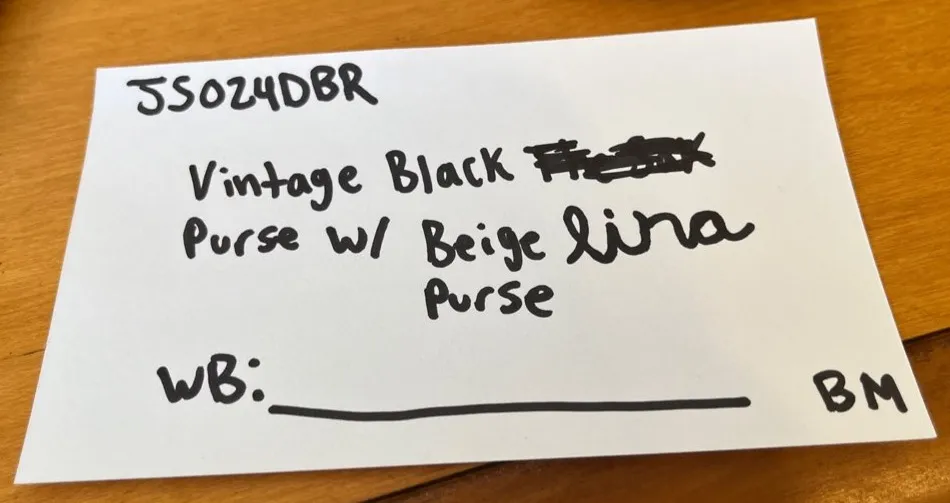 JS024DBR
Vintage Black
Purse w/ Beige lira
Purse
WB:
BM